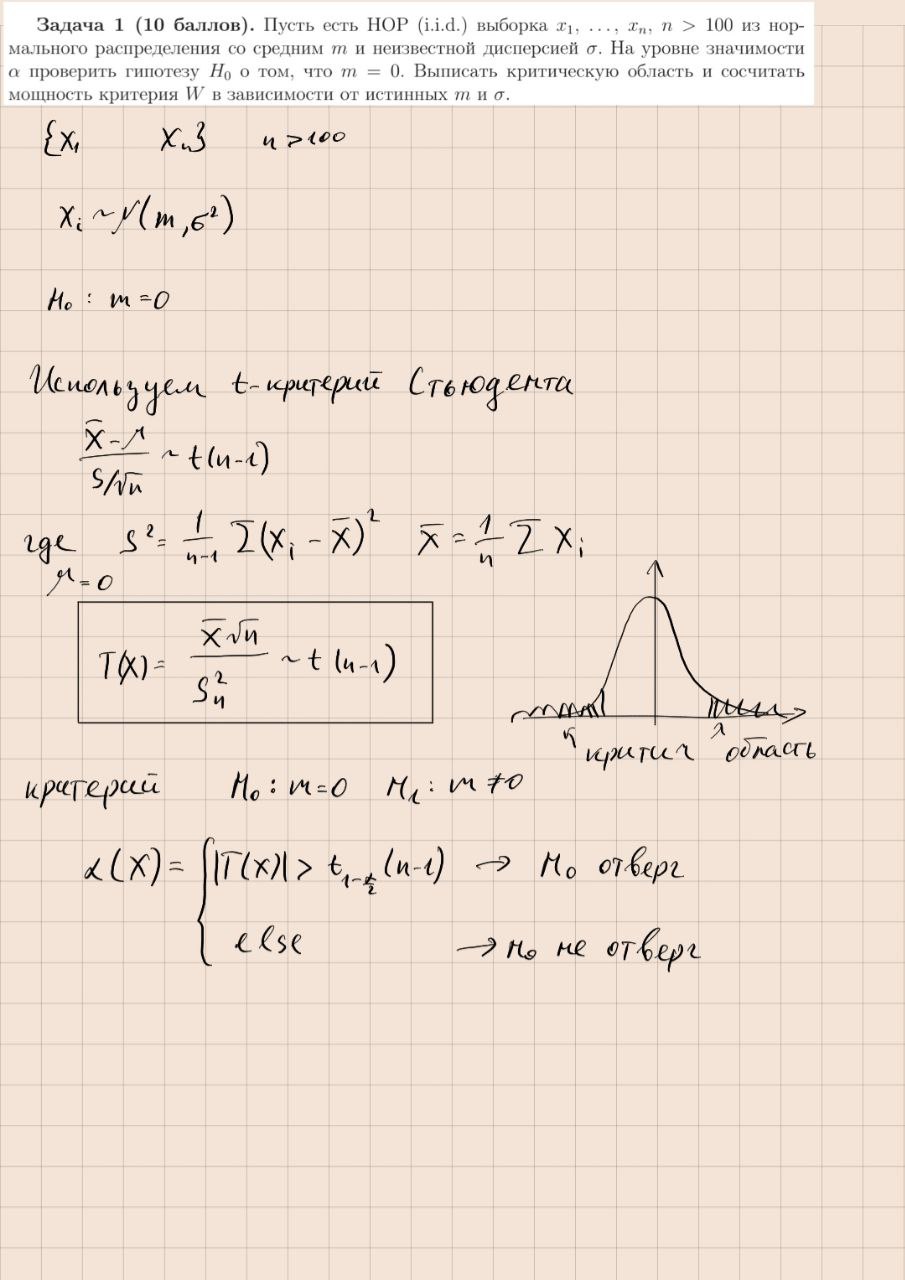 Задача 1 (10 баллов). Пусть есть НОР (i.i.d.) выборка x₁, …, xₙ, n > 100 из нор-
мального распределения со средним m и неизвестной дисперсией σ. На уровне значимости
α проверить гипотезу H₀ о том, что m = 0. Выписать критическую область и сосчитать
мощность критерия W в зависимости от истинных m и σ.
{X₁ Xₙ} n > 100
Xᵢ ~ N(m, σ²)
H₀ : m = 0
Используем t-критерий Стьюдента
(X̄ - μ)/(S/√n) ~ t(n-1)
где S² = 1/(n-1) Σ(Xᵢ - X̄)² X̄ = 1/n Σ Xᵢ
μ = 0
T(X) = X̄√n / Sₙ² ~ t(n-1)
критич область
критерий H₀ : m = 0 H₁ : m ≠ 0
α(X) = { |T(X)| > t_{1-α/2}(n-1) → H₀ отверг
else → H₀ не отверг